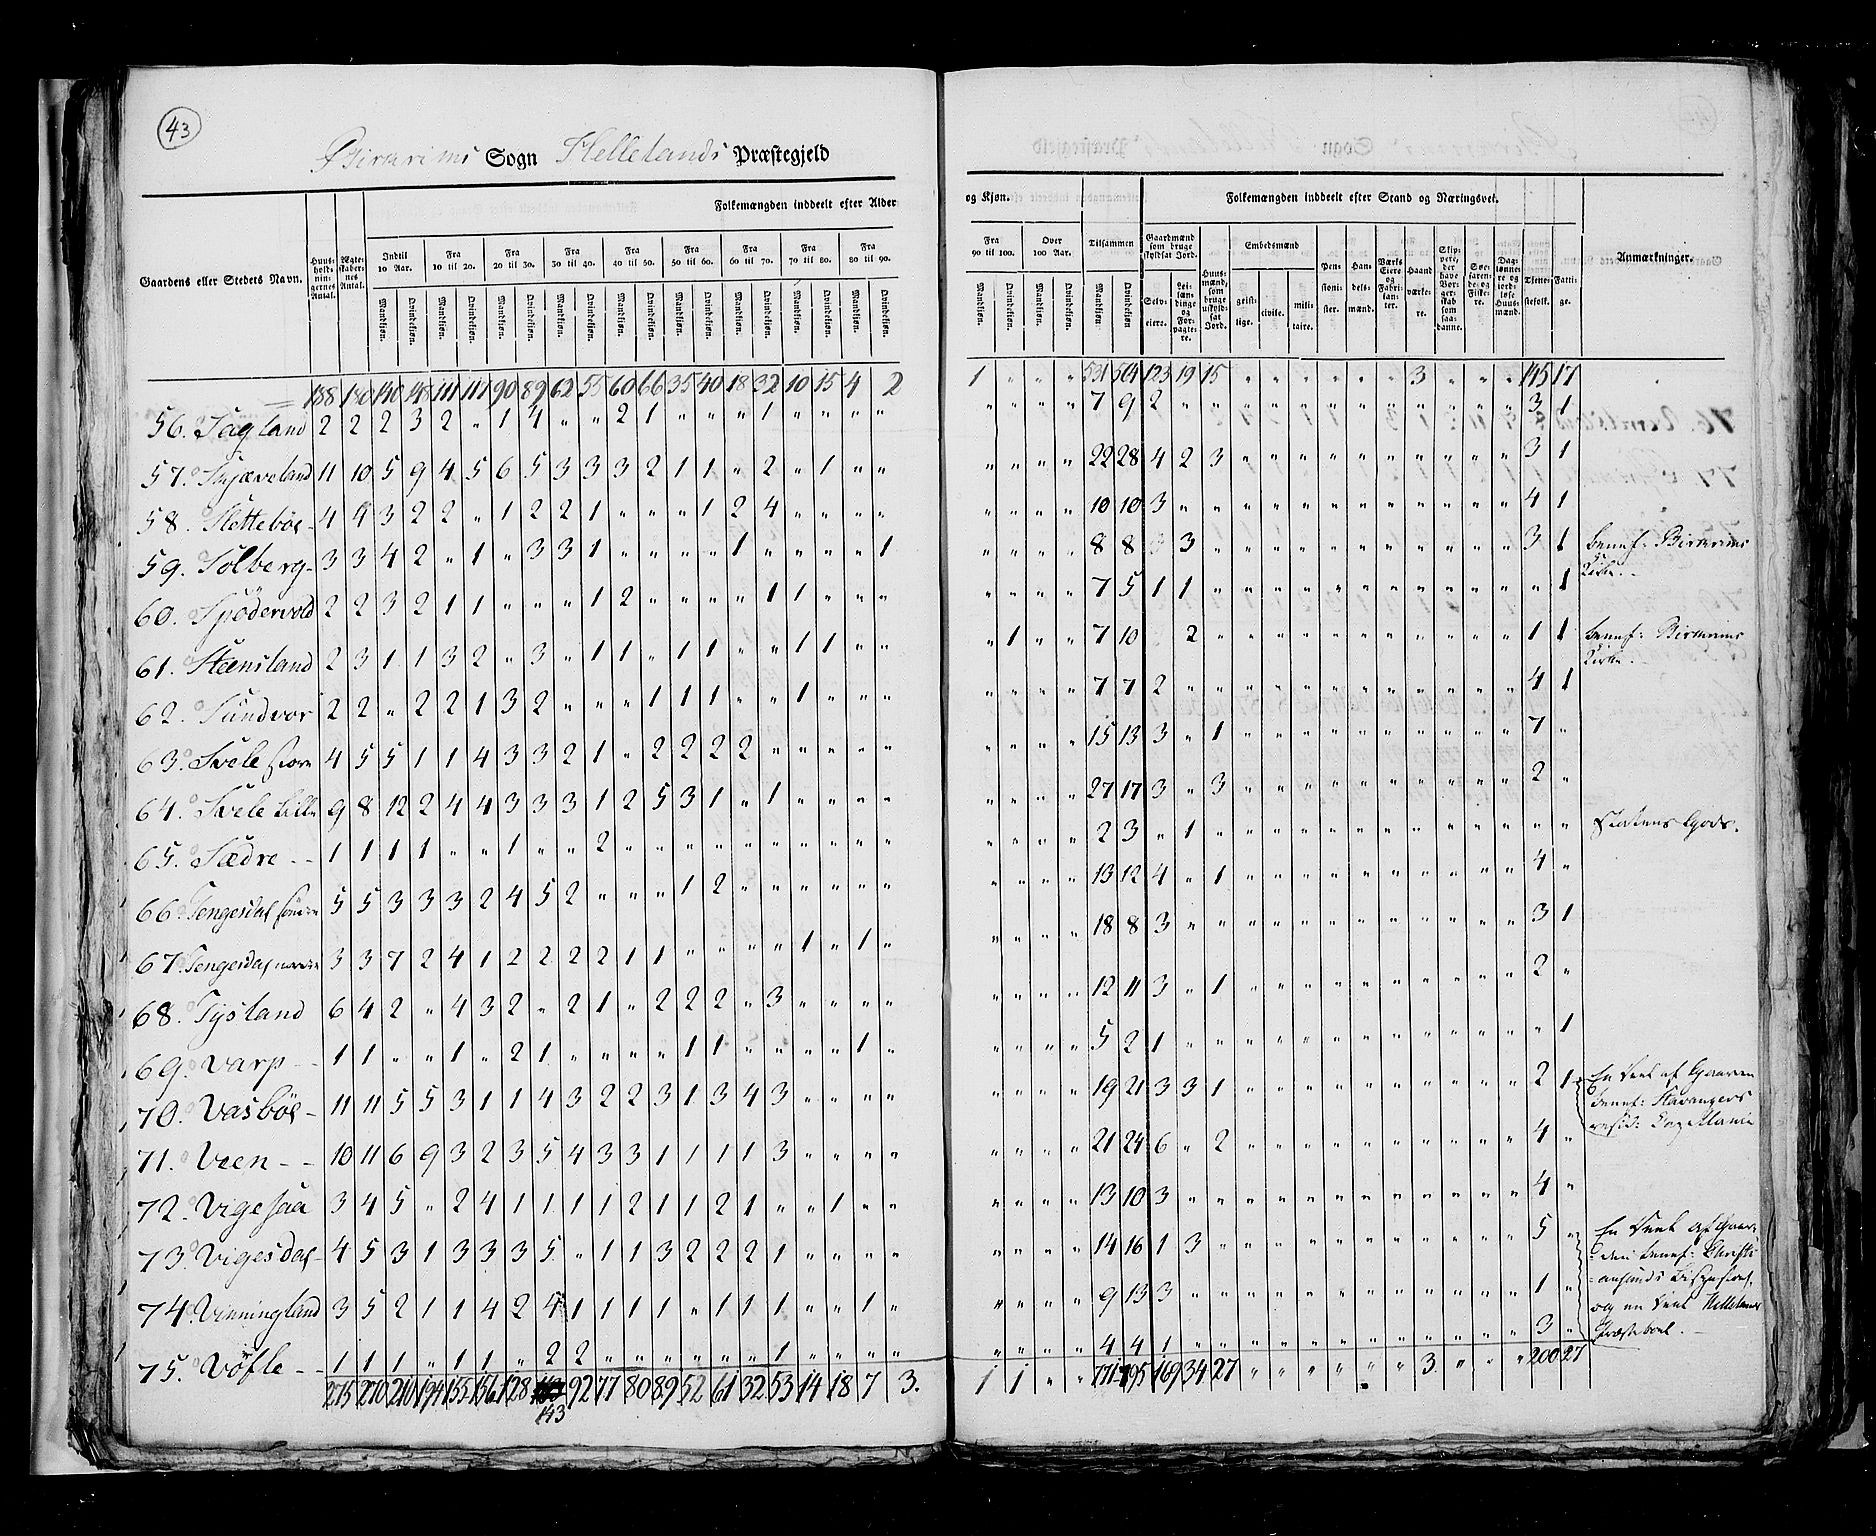 43
Birkrims Sogn Hellelands Præstegjeld
Folkemængden inddeelt efter Alder og Kjøn. Folkemængden inddeelt efter Stand og Næringsvei.
Gaardens eller Stedets Navn. Huusholdningernes Antal. Ægteskabernes Antal. Indtil 10 Aar. Fra 10 til 20. Fra 20 til 30. Fra 30 til 40. Fra 40 til 50. Fra 50 til 60. Fra 60 til 70. Fra 70 til 80. Fra 80 til 90. Fra 90 til 100. Over 100 Aar. Tilsammen Gaardmænd som bruge skyldsat Jord. Huusmænd, som bruge uskyldsat Jord. Embedsmænd Pensionister. Handelsmænd. Værks-Eiere og Fabrikanter. Haandværkere. Skippere, der have Borgerskab som saadanne. Søefarende og Fiskere. Dagslønnere og jordløse Huusmænd. Tjenestefolk. Fattige. Anmærkninger.
Mandkjøn. Qvindekjøn. Mandkjøn. Qvindekjøn. Mandkjøn. Qvindekjøn. Mandkjøn. Qvindekjøn. Mandkjøn. Qvindekjøn. Mandkjøn. Qvindekjøn. Mandkjøn. Qvindekjøn. Mandkjøn. Qvindekjøn. Mandkjøn. Qvindekjøn. Mandkjøn. Qvindekjøn. Mandkjøn. Qvindekjøn. Mandkjøn. Qvindekjøn Selveiere. Leilændinge og Forpagtere. geistlige. civile. militaire.
188 180 140 148 111 117 90 89 62 55 60 66 35 40 18 32 10 15 4 2 1 " " " 531 504 123 19 15 " " " " " " 3 " " " 145 17
56. Sagland 2 2 2 3 2 " 1 4 " " 2 1 " " " 1 " " " " " " " " 7 9 2 " " " " " " " " " " " " 3 1
57. Skjæveland 11 10 5 9 4 5 6 5 3 3 3 2 1 1 " 2 " 1 " " " " " " 22 28 4 2 3 " " " " " " " " " " 3 1
58. Slettebøe 4 4 3 2 2 " 1 2 2 1 " " " 1 2 4 " " " " " " " " 10 10 3 " " " " " " " " " " " " 4 1
59. Solberg 3 3 4 2 " 1 " 3 3 1 " " " " 1 " " " " 1 " " " " 8 8 3 " " " " " " " " " " " 3 1 benef: Birkrims Kirke.
60. Spödervold 2 2 3 2 1 1 " " " 1 2 " " " " 1 1 " " " " " " " 7 5 1 1 " " " " " " " " " " " " 1
61. Steensland 2 3 1 1 3 2 " 3 " 1 1 " 1 1 " " 1 1 " " " 1 " " 7 10 2 " " " " " " " " " " " 1 1 benef: Birkrims Kirke.
62. Sundvor 2 2 " 2 2 1 3 2 " " " 1 1 1 " " 1 " " " " " " " 7 7 2 " " " " " " " " " " " " 4 1
63. Svele store 4 5 5 1 1 4 3 3 2 1 " 2 2 2 2 " " " " " " " " " 15 13 3 " 1 " " " " " " " " " " 7 "
64. Svele lille 9 8 12 2 4 4 3 3 3 1 2 5 3 1 " 1 " " " " " " " " 27 17 3 " 3 " " " " " " " " " " 2 "
65. Sædre 1 1 1 1 " " 1 " " 2 " " " " " " " " " " " " " " 2 3 " 1 " " " " " " " " " " " " " Statens Gods.
66. Tengesdal søndre 5 5 3 3 3 2 4 5 2 " " " 1 2 " " " " " " " " " " 13 12 4 " 1 " " " " " " " " " " 4 "
67. Tengesdal nordre 3 3 7 2 4 1 2 2 2 2 1 1 " " " " 1 " 1 " " " " " 18 8 3 " " " " " " " " " " " " 3 1
68. Tysland 6 4 2 " 4 3 2 " 2 1 " 2 2 2 " 3 " " " " " " " " 12 11 3 " 1 " " " " " " " " " " 2 "
69. Varp 1 1 " " 1 " 2 1 " " " " 1 1 " " " " 1 " " " " " 5 2 1 " " " " " " " " " " " " " 1
70. Vasbøe 11 11 5 5 3 1 1 4 3 2 2 3 1 3 4 3 " " " " " " " " 19 21 3 3 1 " " " " " " " " " " 2 1 En Deel af Gaarden benef: Stavangers resid: Capellanie
71. Veen 10 11 6 9 3 2 3 5 4 3 3 1 1 1 1 3 " " " " " " " " 21 24 6 " 2 " " " " " " " " " " 4 "
72. Vigesaa 3 4 5 " 2 4 1 1 1 1 2 1 1 2 1 " " 1 " " " " " " 13 10 3 " " " " " " " " " " " " 4 "
73. Vigesdal 4 5 3 1 3 3 3 5 " 1 1 3 2 2 2 1 " " " " " " " " 14 16 1 3 " " " " " " " " " " " 5 " En Deel af Gaarden benef: Christiansands Bispestoel, og en Deel Hellelands Præsteboel.
74. Vinningland 3 5 2 1 1 4 2 4 1 1 1 1 " 1 1 1 " " 1 " " " " " 9 13 3 " " " " " " " " " " " " 1 "
75. Vøfle 1 1 1 " 1 1 " 2 2 " " " " " " 1 " " " " " " " " 4 4 1 " " " " " " " " " " " " 3 "
275 270 210 194 155 156 128 143 92 77 80 89 52 61 32 53 14 18 7 3. 1 1 " " 771 795 169 34 27 " " " " " " 3 " " " 200 27